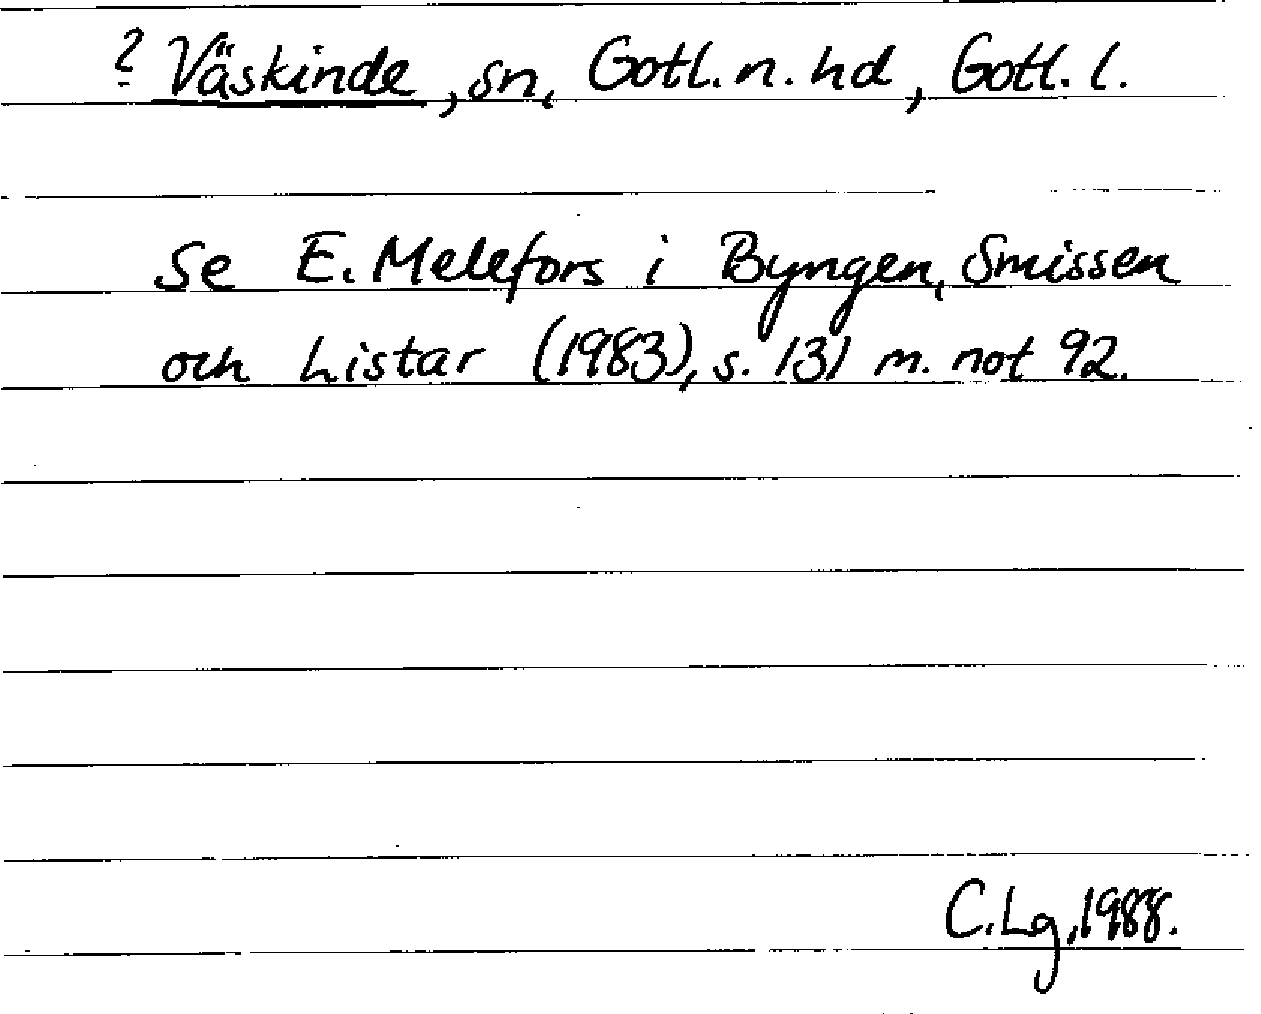 ? Väskinde, sn, Gotl. n. hd, Gotl. l.
Se E. Melefors i Byngen, Smissen
och Listar (1983), s. 131 m. not 92.
C. Lg, 1988.